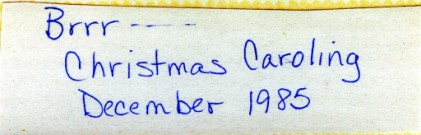 Brrr ----
Christmas Caroling
December 1985